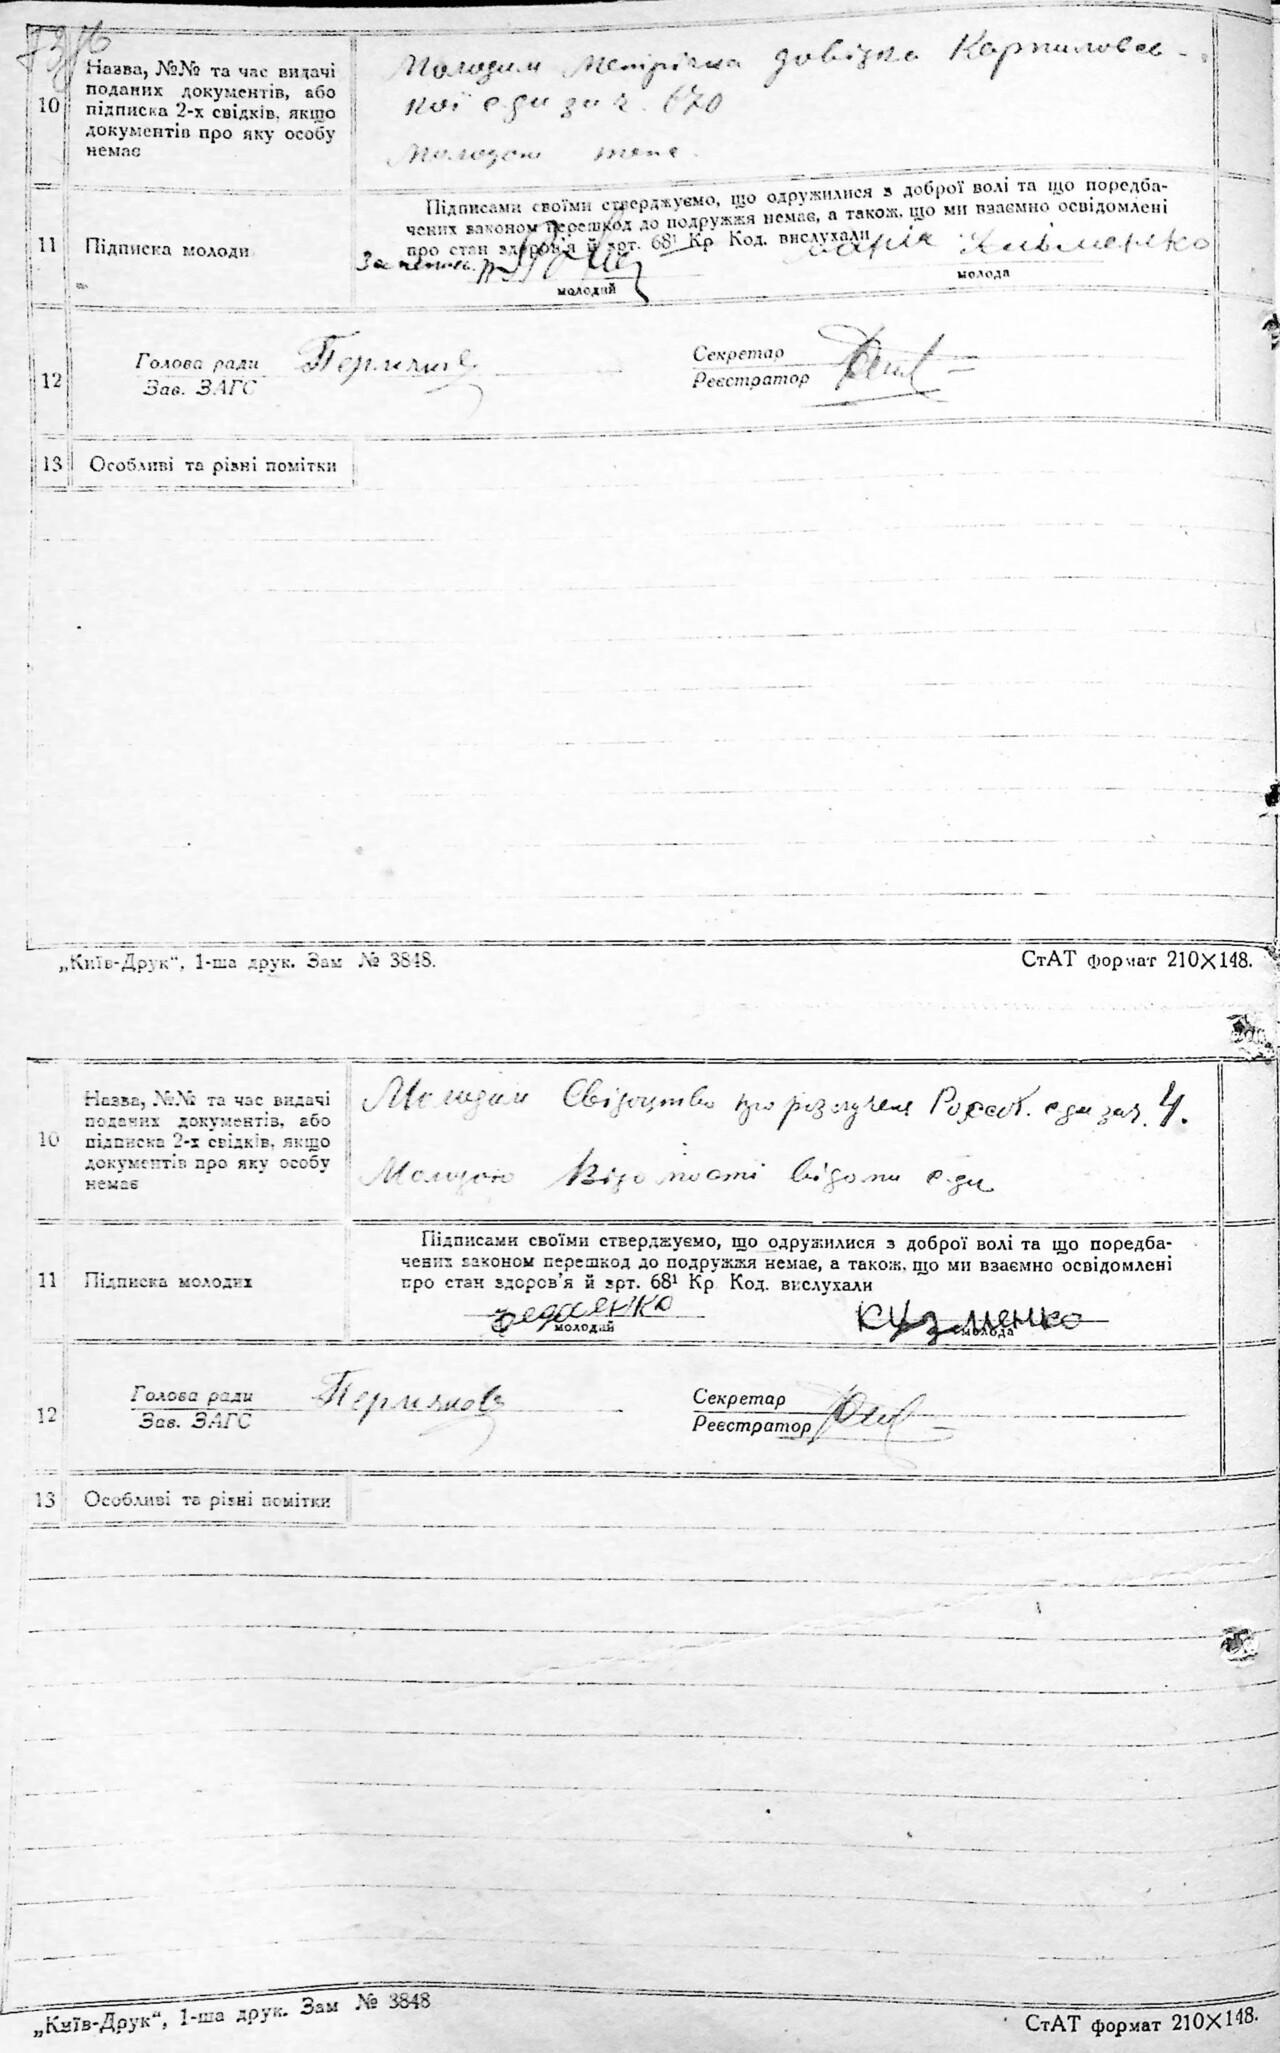 10
Назва, №№ та час видачі
поданих документів, або
підписка 2-х свідків, якщо
документів про яку особу
немає
Молодим Метрична довідка Карпиловсь-
кої с/ди за ч. 670
Молодою теж.
11
Підписка молоди
Підписами своїми стверджуємо, що одружилися з доброї волі та що поредба-
чених законом перешкод до подружжя немає, а також, що ми взаємно освідомлені
про стан здоров'я й арт. 68¹ Кр Код. вислухали
Марія Клименко
молодий
молода
12
Голова ради
Зав. ЗАГС
Секретар
Реєстратор
13
Особливі та різні помітки
„Київ-Друк“, 1-ша друк. Зам № 3848.
СтАТ формат 210×148.
10
Назва, №№ та час видачі
поданих документів, або
підписка 2-х свідків, якщо
документів про яку особу
немає
Молодим Свідоцтво про розлучене с/ди за ч. 4.
Молодою Відомості відомі с/ди
11
Підписка молодих
Підписами своїми стверджуємо, що одружилися з доброї волі та що поредба-
чених законом перешкод до подружжя немає, а також, що ми взаємно освідомлені
про стан здоров'я й арт. 68¹ Кр Код. вислухали
кузменко
молодий
молода
12
Голова ради
Зав. ЗАГС
Секретар
Реєстратор
13
Особливі та різні помітки
„Київ-Друк“, 1-ша друк. Зам № 3848
СтАТ формат 210×148.